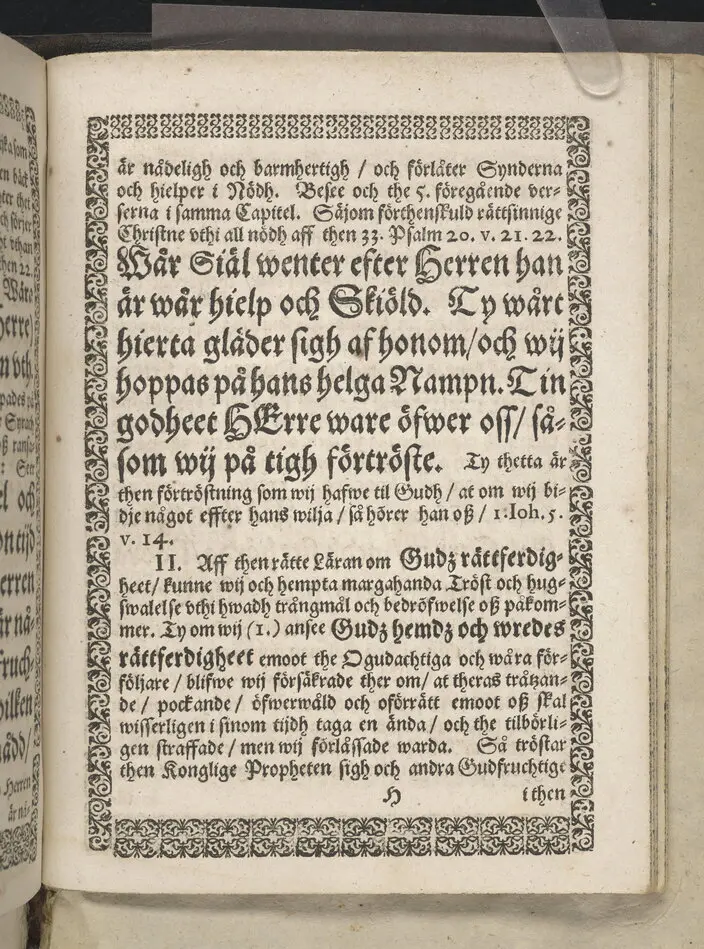 är nådeligh och barmhertigh / och förlåter Synderna
och hielper i Nödh. Besee och the 5. föregående ver-
serna i samma Capitel. Säjom förthenskuld rättsinnige
Christne vthi all nödh aff then 33. Psalm 20. v. 21. 22.
Wår Siäl wenter efter Herren han
är wår hielp och Skiöld. Ty wårt
hierta gläder sigh af honom/och wij
hoppas på hans helga Nampn. Tin
godheet HErre ware öfwer oss/ så-
som wij på tigh förtröste. Ty thetta är
then förtröstning som wij hafwe til Gudh / at om wij bi-
dje något effter hans wilja / så hörer han oß / 1. Ioh. 5.
v. 14.
II. Aff then rätte Läran om Gudz rättferdig-
heet/ kunne wij och hempta margahanda Tröst och hug-
swalelse vthi hwadh trångmål och bedröfwelse oß påkom-
mer. Ty om wij (1.) ansee Gudz hemdz och wredes
rättferdigheet emoot the Ogudachtiga och wåra för-
följare / blifwe wij försäkrade ther om/ at theras tråtzan-
de / pockande / öfwerwåld och oförrätt emoot oß skal
wisserligen i sinom tijdh taga en ända/ och the tilbörli-
gen straffade / men wij förlåssade warda. Så tröstar
then Konglige Propheten sigh och andra Gudfruchtige
H i then